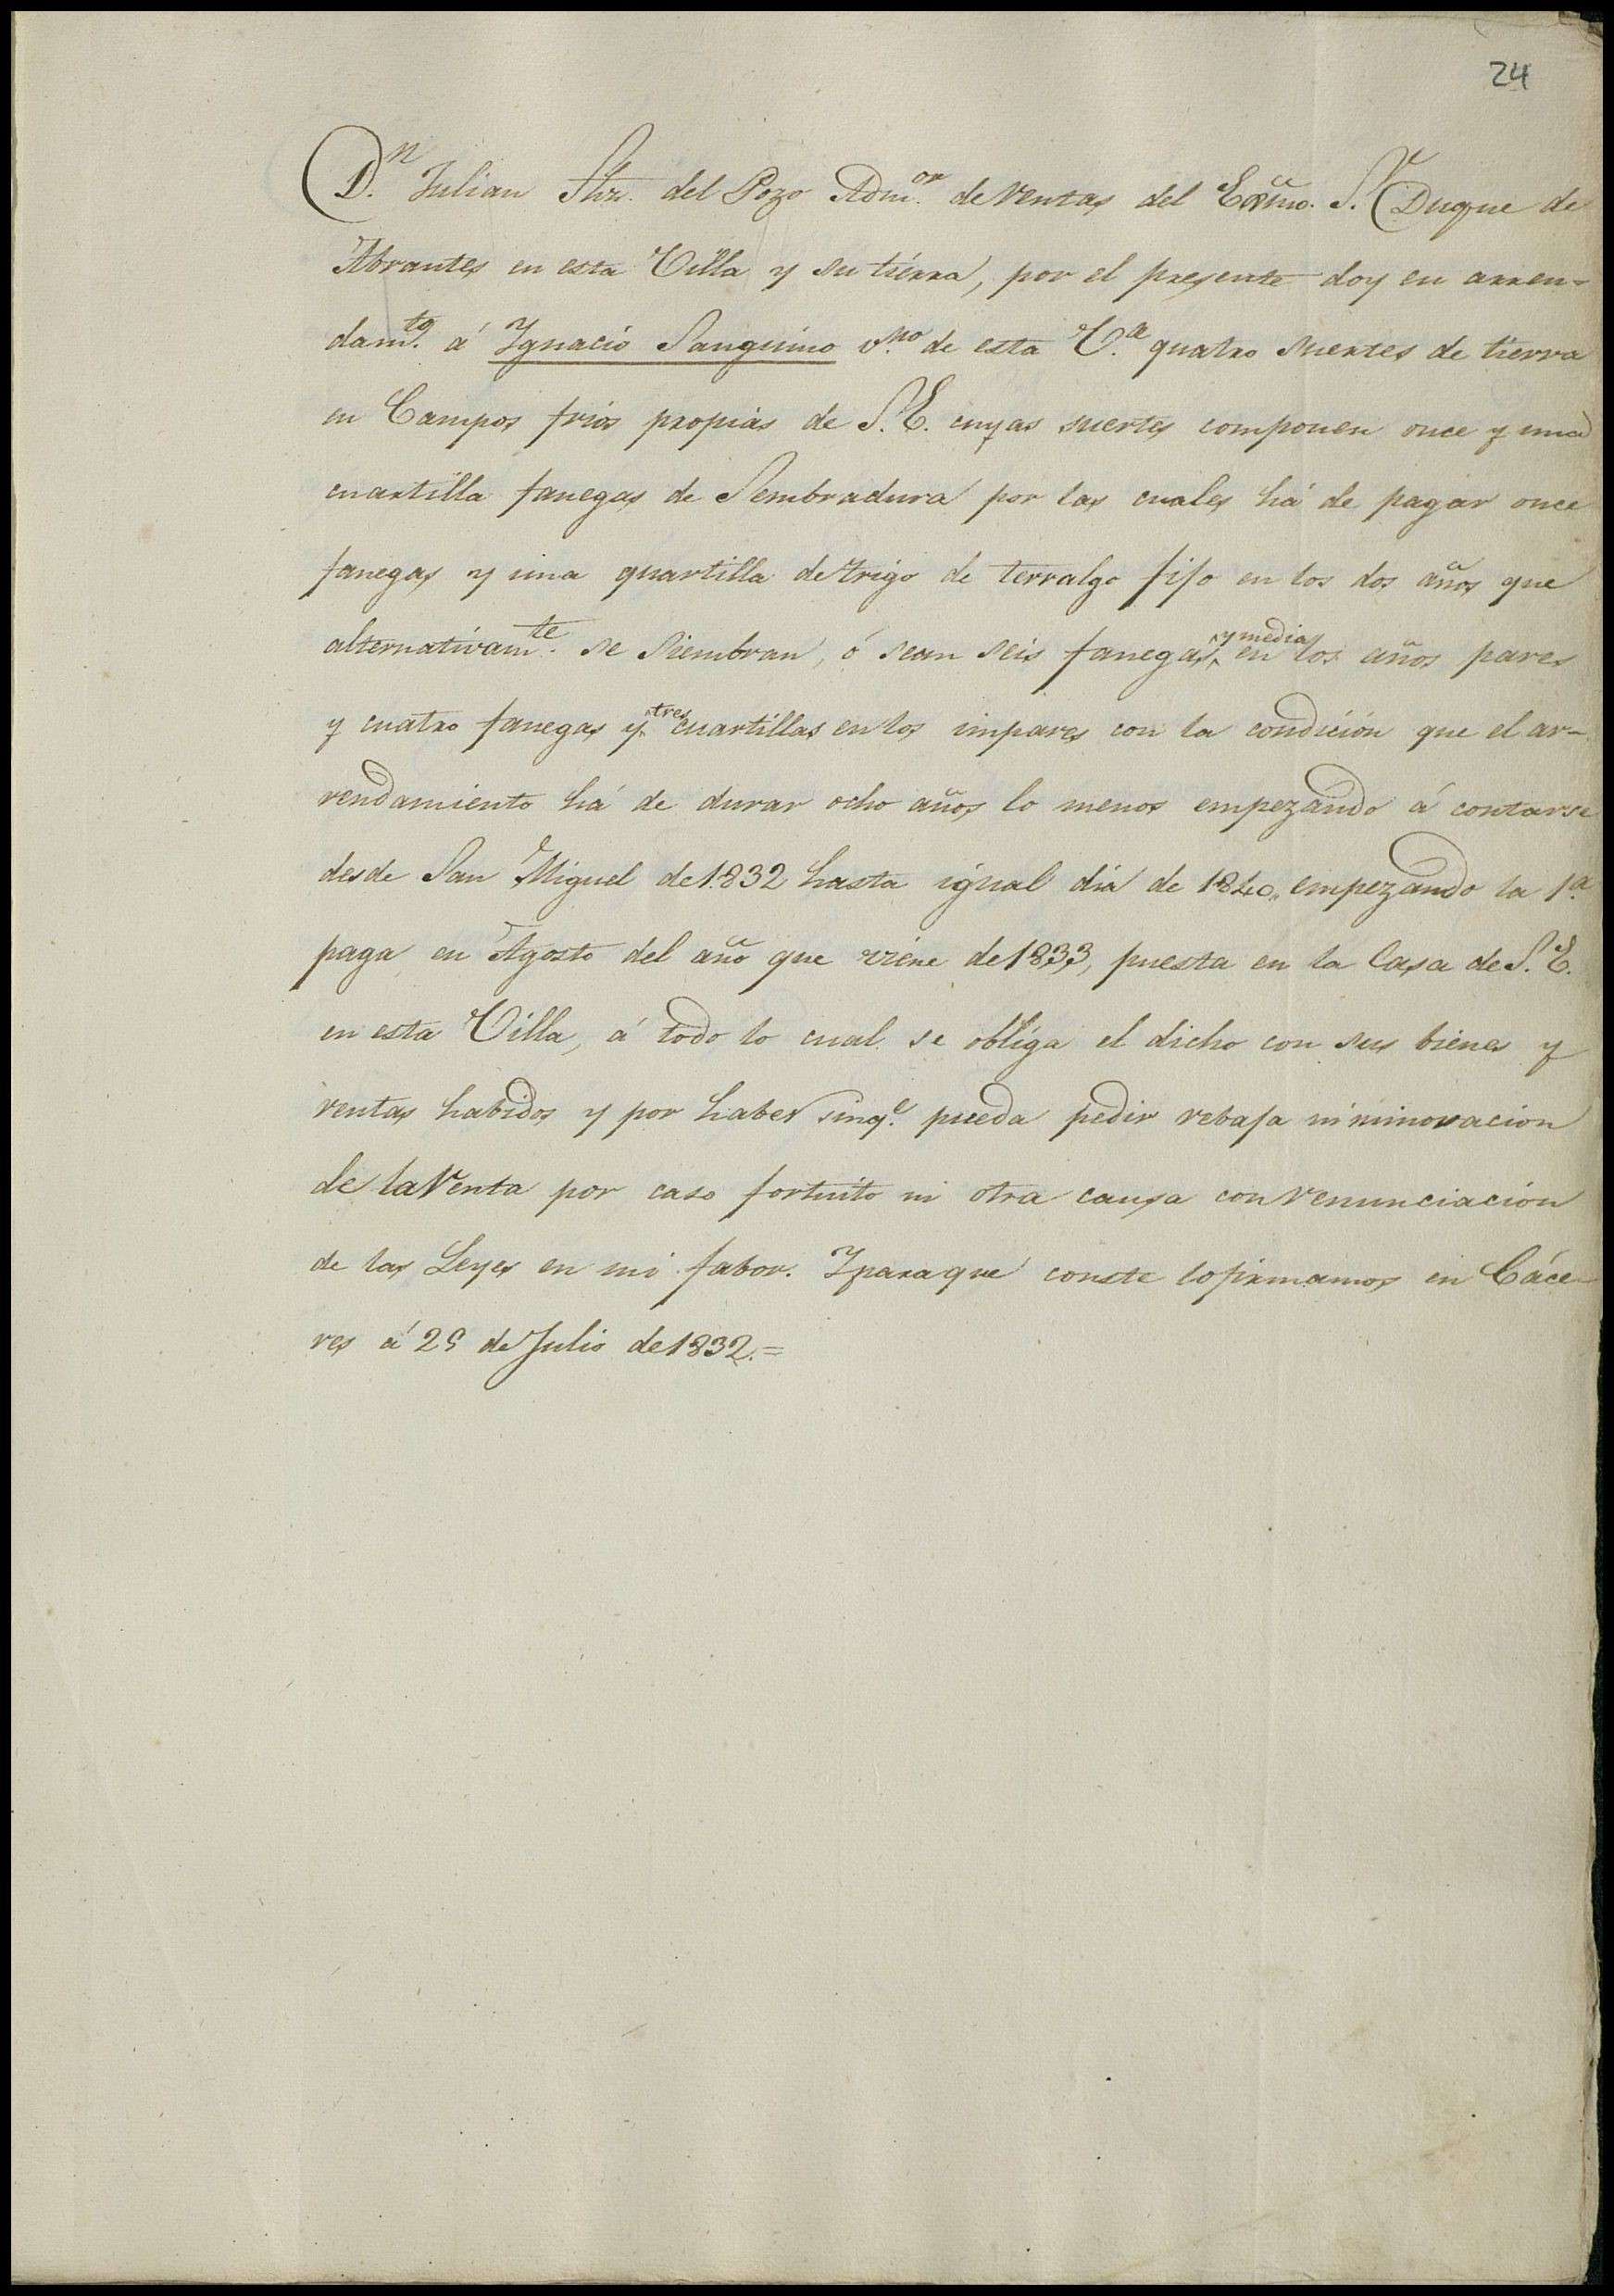 24
D.n Julian Shz. del Pozo Adm.or de rentas del Excmo. S.r Duque de
Abrantes en esta Villa y su tierra, por el presente doy en arren-
dam.to á Ygnacio Sanguino v.no de esta V.a quatro suertes de tierra
en Campos frios propias de S. E. cuyas suertes componen once y una
cuartilla fanegas de Sembradura por las cuales há de pagar once
fanegas y una quartilla de trigo de terralgo fijo en los dos años que
alternativam.te se siembran, ó sean seis fanegas y media en los años pares
y cuatro fanegas y tres cuartillas en los impares con la condición que el ar-
rendamiento há de durar ocho años lo menos empezando á contarse
desde San Miguel de 1832 hasta igual dia de 1840, empezando la 1.a
paga en Agosto del año que viene de 1833, puesta en la Casa de S. E.
en esta Villa, á todo lo cual se obliga el dicho con sus bienes y
rentas habidos y por haber sin q.e pueda pedir rebaja ni minoracion
de la renta por caso fortuito ni otra causa con renunciación
de las Leyes en mi fabor. Y para que conste lo firmamos en Cáce-
res á 25 de Julio de 1832.=